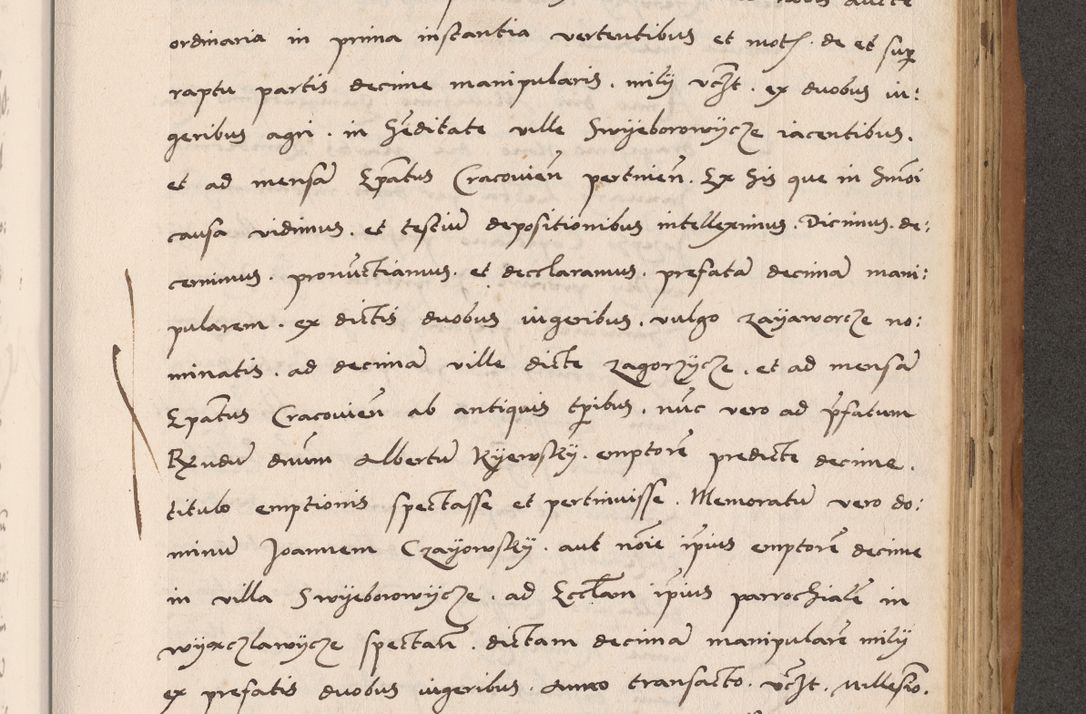 ordinaria in prima instantia vertentibus et mot. de et sup
raptu partis decime manipularis . milij vcht . ex duobus iu:
geribus agri . in hereditate ville Swyeborowycze iacentibus .
et ad mensam Epatus Cracovien pertinen . Ex his que in hmoi
causa vidimus . et testium depositionibus intelleximus . Dicimus . de:
cernimus . pronunctiamus . et decclaramus . prefatam decimam mani:
pularem . ex dictis duobus iugeribus . vulgo zayaworcze no:
minatis . ad decimam ville dicte zagorzycze . et ad mensam
Epatus Cracovien ab antiquis tpibus . nunc vero ad pfatum
Rndum dnum Albertum Kyewsky . emptorem predicte decime .
titulo emptionis spectasse et pertinuisse . Memoratum vero do:
minum Joannem Czayowsky . aut noie ipius emptorem decime
in villa Swyeborowycze . ad Ecclam ipius parrochialem in
wyączlawycze spectan . dictam decimam manipularem milij
ex prefatis duobus iugeribus . Anno transacto . vcht . Millesimo .